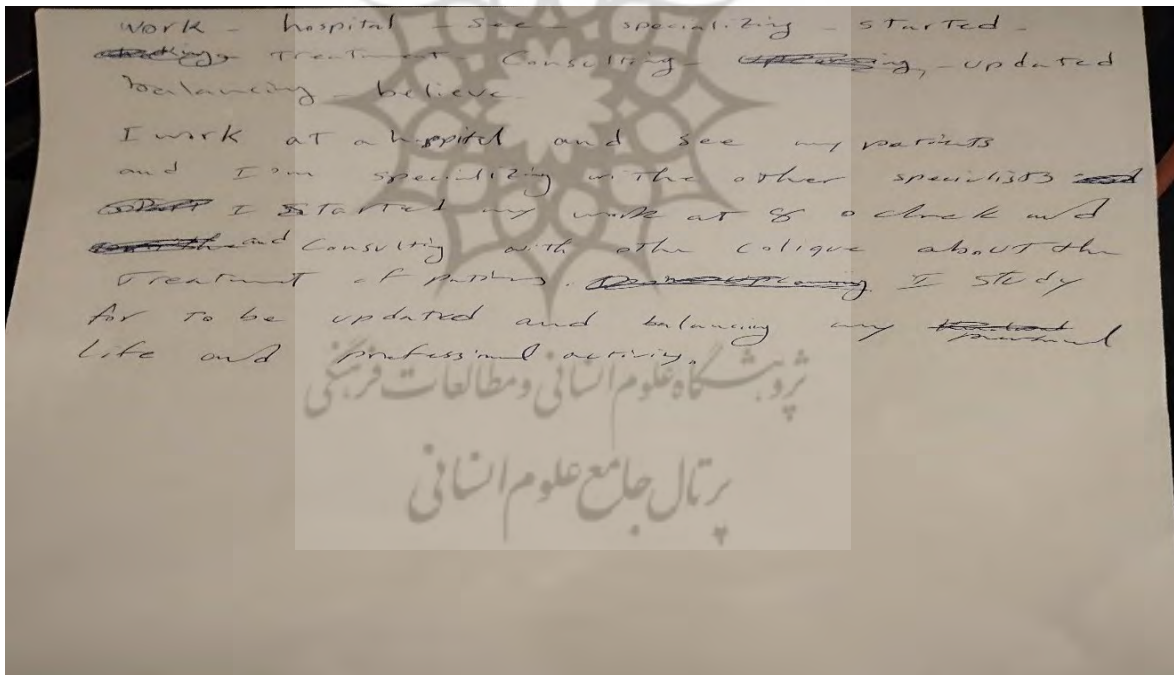 work - hospital - see - specializing - started -
Treatment - Consulting - updated
balancing - believe
I work at a hospital and see my patients
and I am specializing with the other specialists
I started my work at 8 o clock and
and Consulting with othe colique about the
Treatment of I study
for To be updated and balancing my
Life and professional activity.
پژوهشگاه علوم انسانی و مطالعات فرهنگی
پرتال جامع علوم انسانی